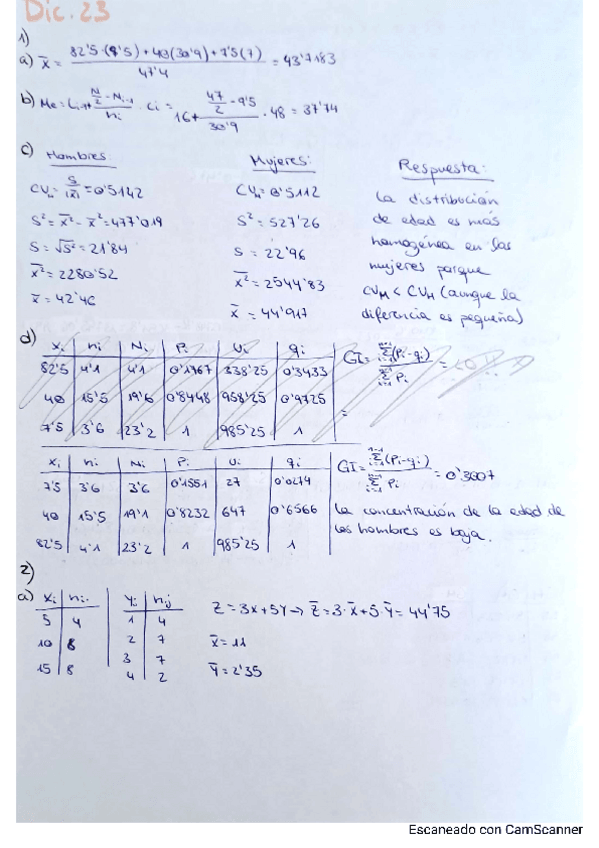 Dic. 23
1)
a) x̄ = (82'5·(9'5) + 40(30'9) + 7'5(7)) / 47'4 = 43'7183
b) Me = Li-1 + (N/2 - Ni-1)/ni · ci = 16 + (47/2 - 9'5)/30'9 · 48 = 37'74
c) Hombres:
CVH = S/|x̄| = 0'5142
S² = x̄² - x̄² = 477'019
S = √S² = 21'84
x̄² = 2280'52
x̄ = 42'46
Mujeres:
CVM = 0'5112
S² = 527'26
S = 22'96
x̄² = 2544'83
x̄ = 44'917
Respuesta:
La distribución
de edad es más
homogénea en las
mujeres porque
CVM < CVH (aunque la
diferencia es pequeña)
d) xi | ni | Ni | Pi | Ui | qi
82'5 | 4'1 | 4'1 | 0'1767 | 338'25 | 0'3433
40 | 15'5 | 19'6 | 0'8448 | 958'25 | 0'9725
7'5 | 3'6 | 23'2 | 1 | 985'25 | 1
GI = Σ(Pi-qi) / ΣPi =
=
xi | ni | Ni | Pi | Ui | qi
7'5 | 3'6 | 3'6 | 0'1551 | 27 | 0'0274
40 | 15'5 | 19'1 | 0'8232 | 647 | 0'6566
82'5 | 4'1 | 23'2 | 1 | 985'25 | 1
GI = Σ(Pi-qi) / ΣPi = 0'3007
La concentración de la edad de
los hombres es baja.
2)
a) xi | ni. | yj | n.j
5 | 4 | 1 | 4
10 | 8 | 2 | 7
15 | 8 | 3 | 7
4 | 2
Z = 3x + 5Y → Z̄ = 3·x̄ + 5·Ȳ = 44'75
x̄ = 11
Ȳ = 2'35
Escaneado con CamScanner